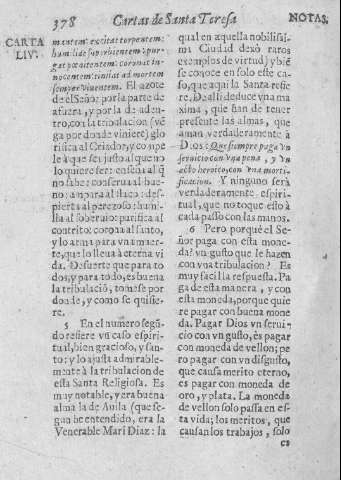 378 Cartas de Santa Teresa NOTAS.
CARTA
LIV.
mantem: excitat torpentem:
humiliat superbientem: pur-
gat pœnitentem: coronat in-
nocentem: iuuat ad mortem
semper viuentem. El azote
de el Señor por la parte de
afuera, y por la de aden-
tro, con la tribulacion (vē
ga por donde viniere) glo
rifica al Criador, y compe
le à que sea justo al que no
lo quiere ser: enseña al q̄
no sabe: conserua al bue-
no: ampara al flaco: des-
pierta al perezoso: humi-
lla al soberuio: purifica al
contrito: corona al santo,
y lo arma para vna muer-
te, que lo lleua à eterna vi
da. De suerte que para to
dos, y para todo, es buena
la tribulaciõ, tomese por
donde, y como se quisie-
re.
5 En el numero segũ-
do refiere vn caso espiri-
tual, bien gracioso, y san-
to: y lo ajusta admirable-
mente à la tribulacion de
esta Santa Religiosa. Es
muy notable, y era buena
alma la de Auila (que se-
gun he entendido, era la
Venerable Mari Diaz: la
qual en aquella nobilissi-
ma Ciudad dexò raros
exemplos de virtud) y biē
se conoce en solo este ca-
so, que aqui la Santa refie
re. De alli deduce vna ma
xima, que han de tener
presente las almas, que
aman verdaderamente à
Dios: Que siempre paga vn
seruicio con vna pena, y vn
acto heroico, con vna morti-
ficacion. Y ninguno serà
verdaderamente espiri-
tual, que no toque esto à
cada passo con las manos.
6 Pero porquè el Se-
ñor paga con esta mone-
da? vn gusto que le hazen
con vna tribulacion? Es
muy facil la respuesta. Pa
ga de esta manera, y con
esta moneda, porque quie
re pagar con buena mone
da. Pagar Dios vn serui-
cio con vn gusto, es pagar
con moneda de vellon; pe
ro pagar con vn disgusto,
que causa merito eterno,
es pagar con moneda de
oro, y plata. La moneda
de vellon solo passa en es-
ta vida; los meritos, que
causan los trabajos, solo